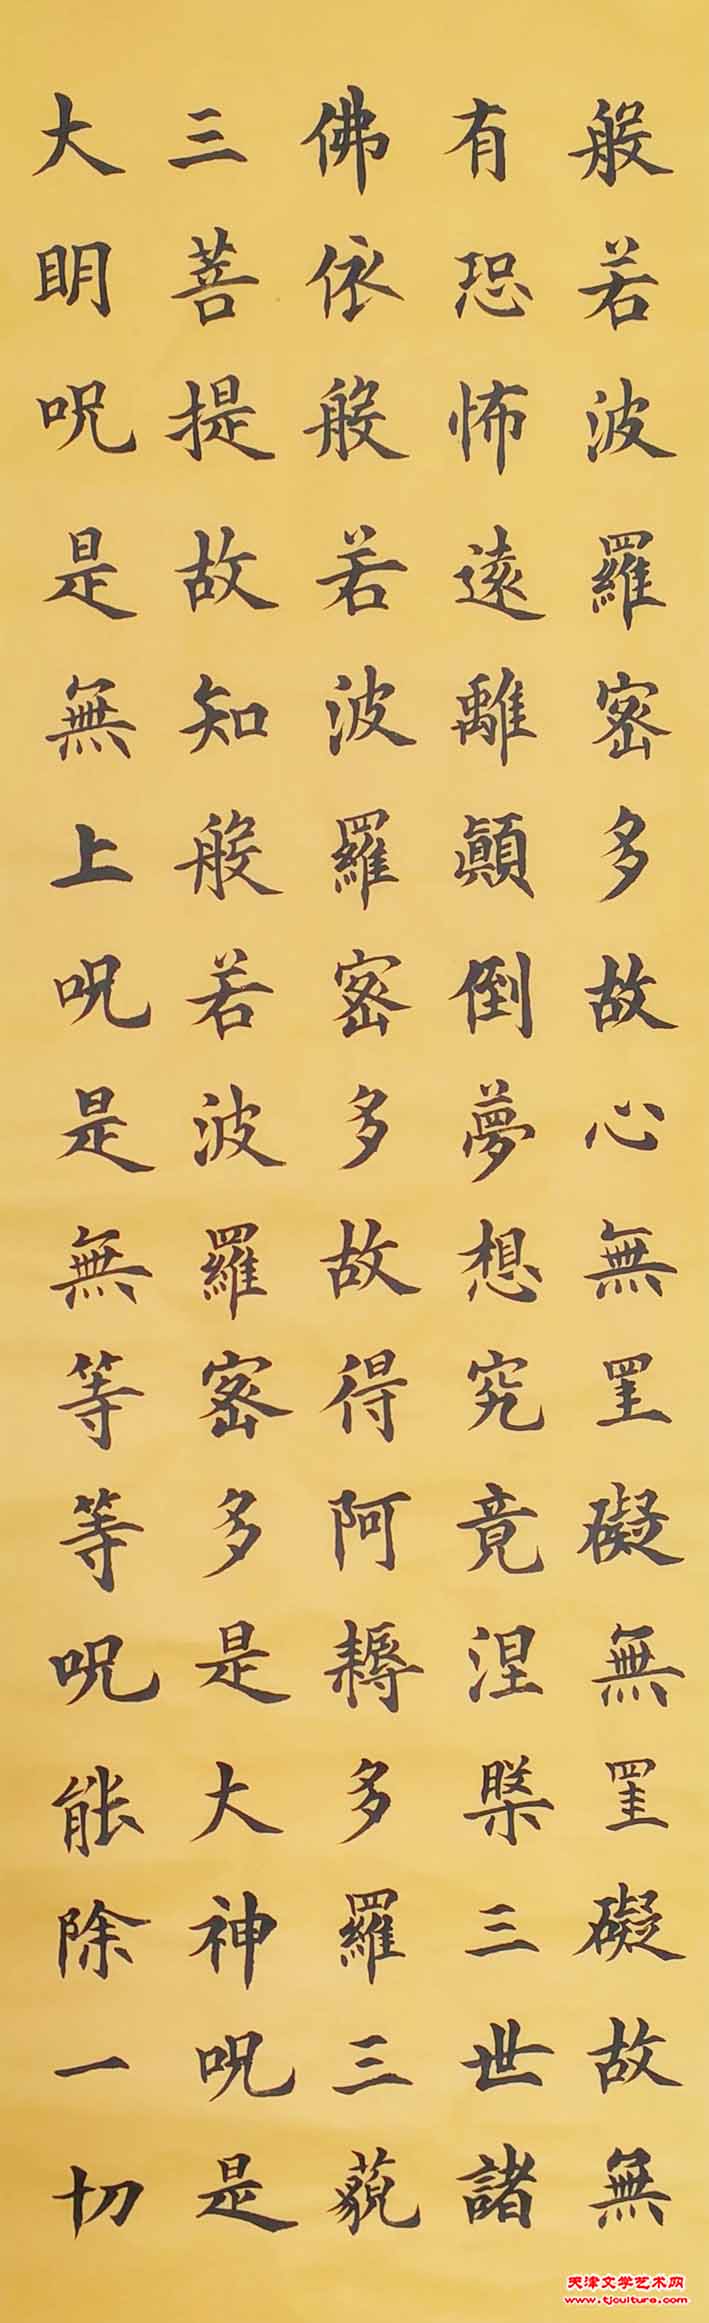 般若波羅密多故心無罣礙無罣礙故無
有恐怖遠離顛倒夢想究竟涅槃三世諸
佛依般若波羅密多故得阿耨多羅三藐
三菩提故知般若波羅密多是大神呪是
大明呪是無上呪是無等等呪能除一切
天津文学艺术网
www.tjculture.com